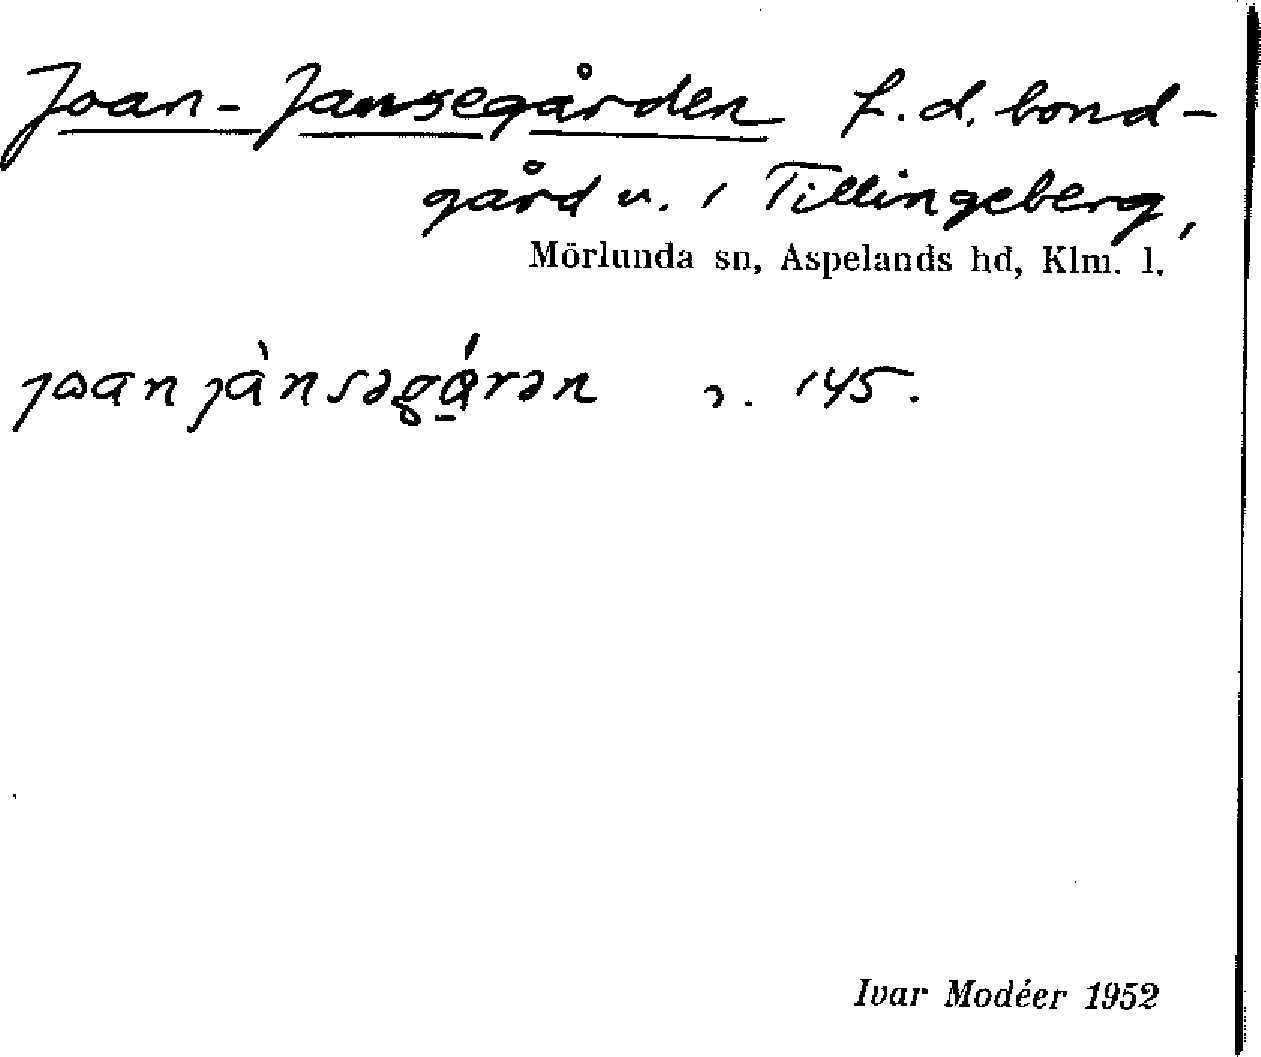 Joan-Jansegården f.d. bond-
gård u. i Tillingeberg,
Mörlunda sn, Aspelands hd, Klm. l.
joan jànsəgárən ɔ. 145.
Ivar Modéer 1952